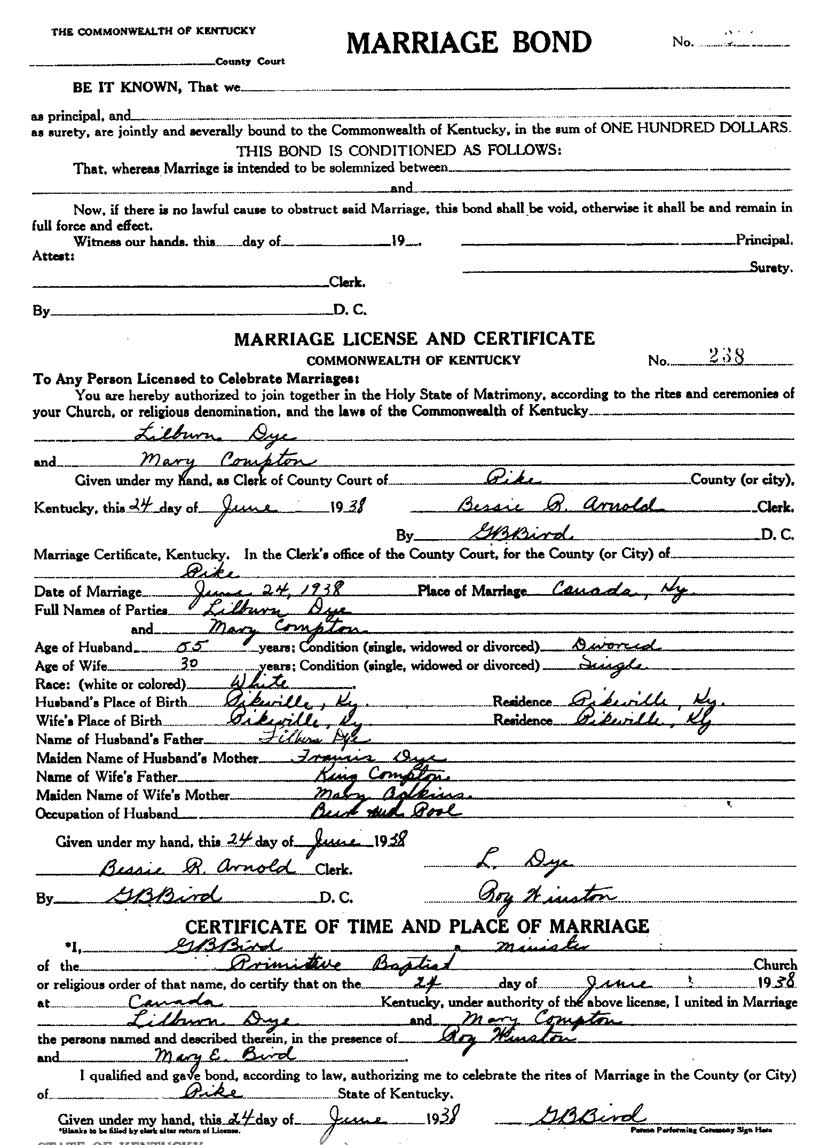 THE COMMONWEALTH OF KENTUCKY
MARRIAGE BOND
No.
County Court
BE IT KNOWN, That we
as principal, and
as surety, are jointly and severally bound to the Commonwealth of Kentucky, in the sum of ONE HUNDRED DOLLARS.
THIS BOND IS CONDITIONED AS FOLLOWS:
That, whereas Marriage is intended to be solemnized between
and
Now, if there is no lawful cause to obstruct said Marriage, this bond shall be void, otherwise it shall be and remain in
full force and effect.
Witness our hands. this day of 19 . Principal.
Attest:
Surety.
Clerk.
By D. C.
MARRIAGE LICENSE AND CERTIFICATE
COMMONWEALTH OF KENTUCKY No. 238
To Any Person Licensed to Celebrate Marriages:
You are hereby authorized to join together in the Holy State of Matrimony, according to the rites and ceremonies of
your Church, or religious denomination, and the laws of the Commonwealth of Kentucky
Lilburn Dye
and Mary Compton
Given under my hand, as Clerk of County Court of Pike County (or city),
Kentucky, this 24 day of June 1938 Bessie R. Arnold Clerk.
By GBBird D. C.
Marriage Certificate, Kentucky. In the Clerk's office of the County Court, for the County (or City) of
Pike
Date of Marriage June 24, 1938 Place of Marriage Canada, Ky.
Full Names of Parties Lilburn Dye
and Mary Compton
Age of Husband 55 years; Condition (single, widowed or divorced) Divorced
Age of Wife 30 years; Condition (single, widowed or divorced) Single
Race: (white or colored) White
Husband's Place of Birth Pikeville, Ky. Residence Pikeville, Ky.
Wife's Place of Birth Pikeville, Ky Residence Pikeville, Ky
Name of Husband's Father Dye
Maiden Name of Husband's Mother Francis Dye
Name of Wife's Father King Compton
Maiden Name of Wife's Mother Mary
Occupation of Husband Pool
Given under my hand, this 24 day of June 1938
Bessie R. Arnold Clerk. L. Dye
By GBBird D. C. Roy Winston
CERTIFICATE OF TIME AND PLACE OF MARRIAGE
*I, GBBird a minister
of the Primitive Baptist Church
or religious order of that name, do certify that on the 24 day of June 1938
at Canada Kentucky, under authority of the above license, I united in Marriage
Lilburn Dye and Mary Compton
the persons named and described therein, in the presence of Roy Winston
and Mary E. Bird
I qualified and gave bond, according to law, authorizing me to celebrate the rites of Marriage in the County (or City)
of Pike State of Kentucky.
Given under my hand, this 24 day of June 1938 GBBird
*Blanks to be filled by clerk after return of License. Person Performing Ceremony Sign Here
STATE OF KENTUCKY